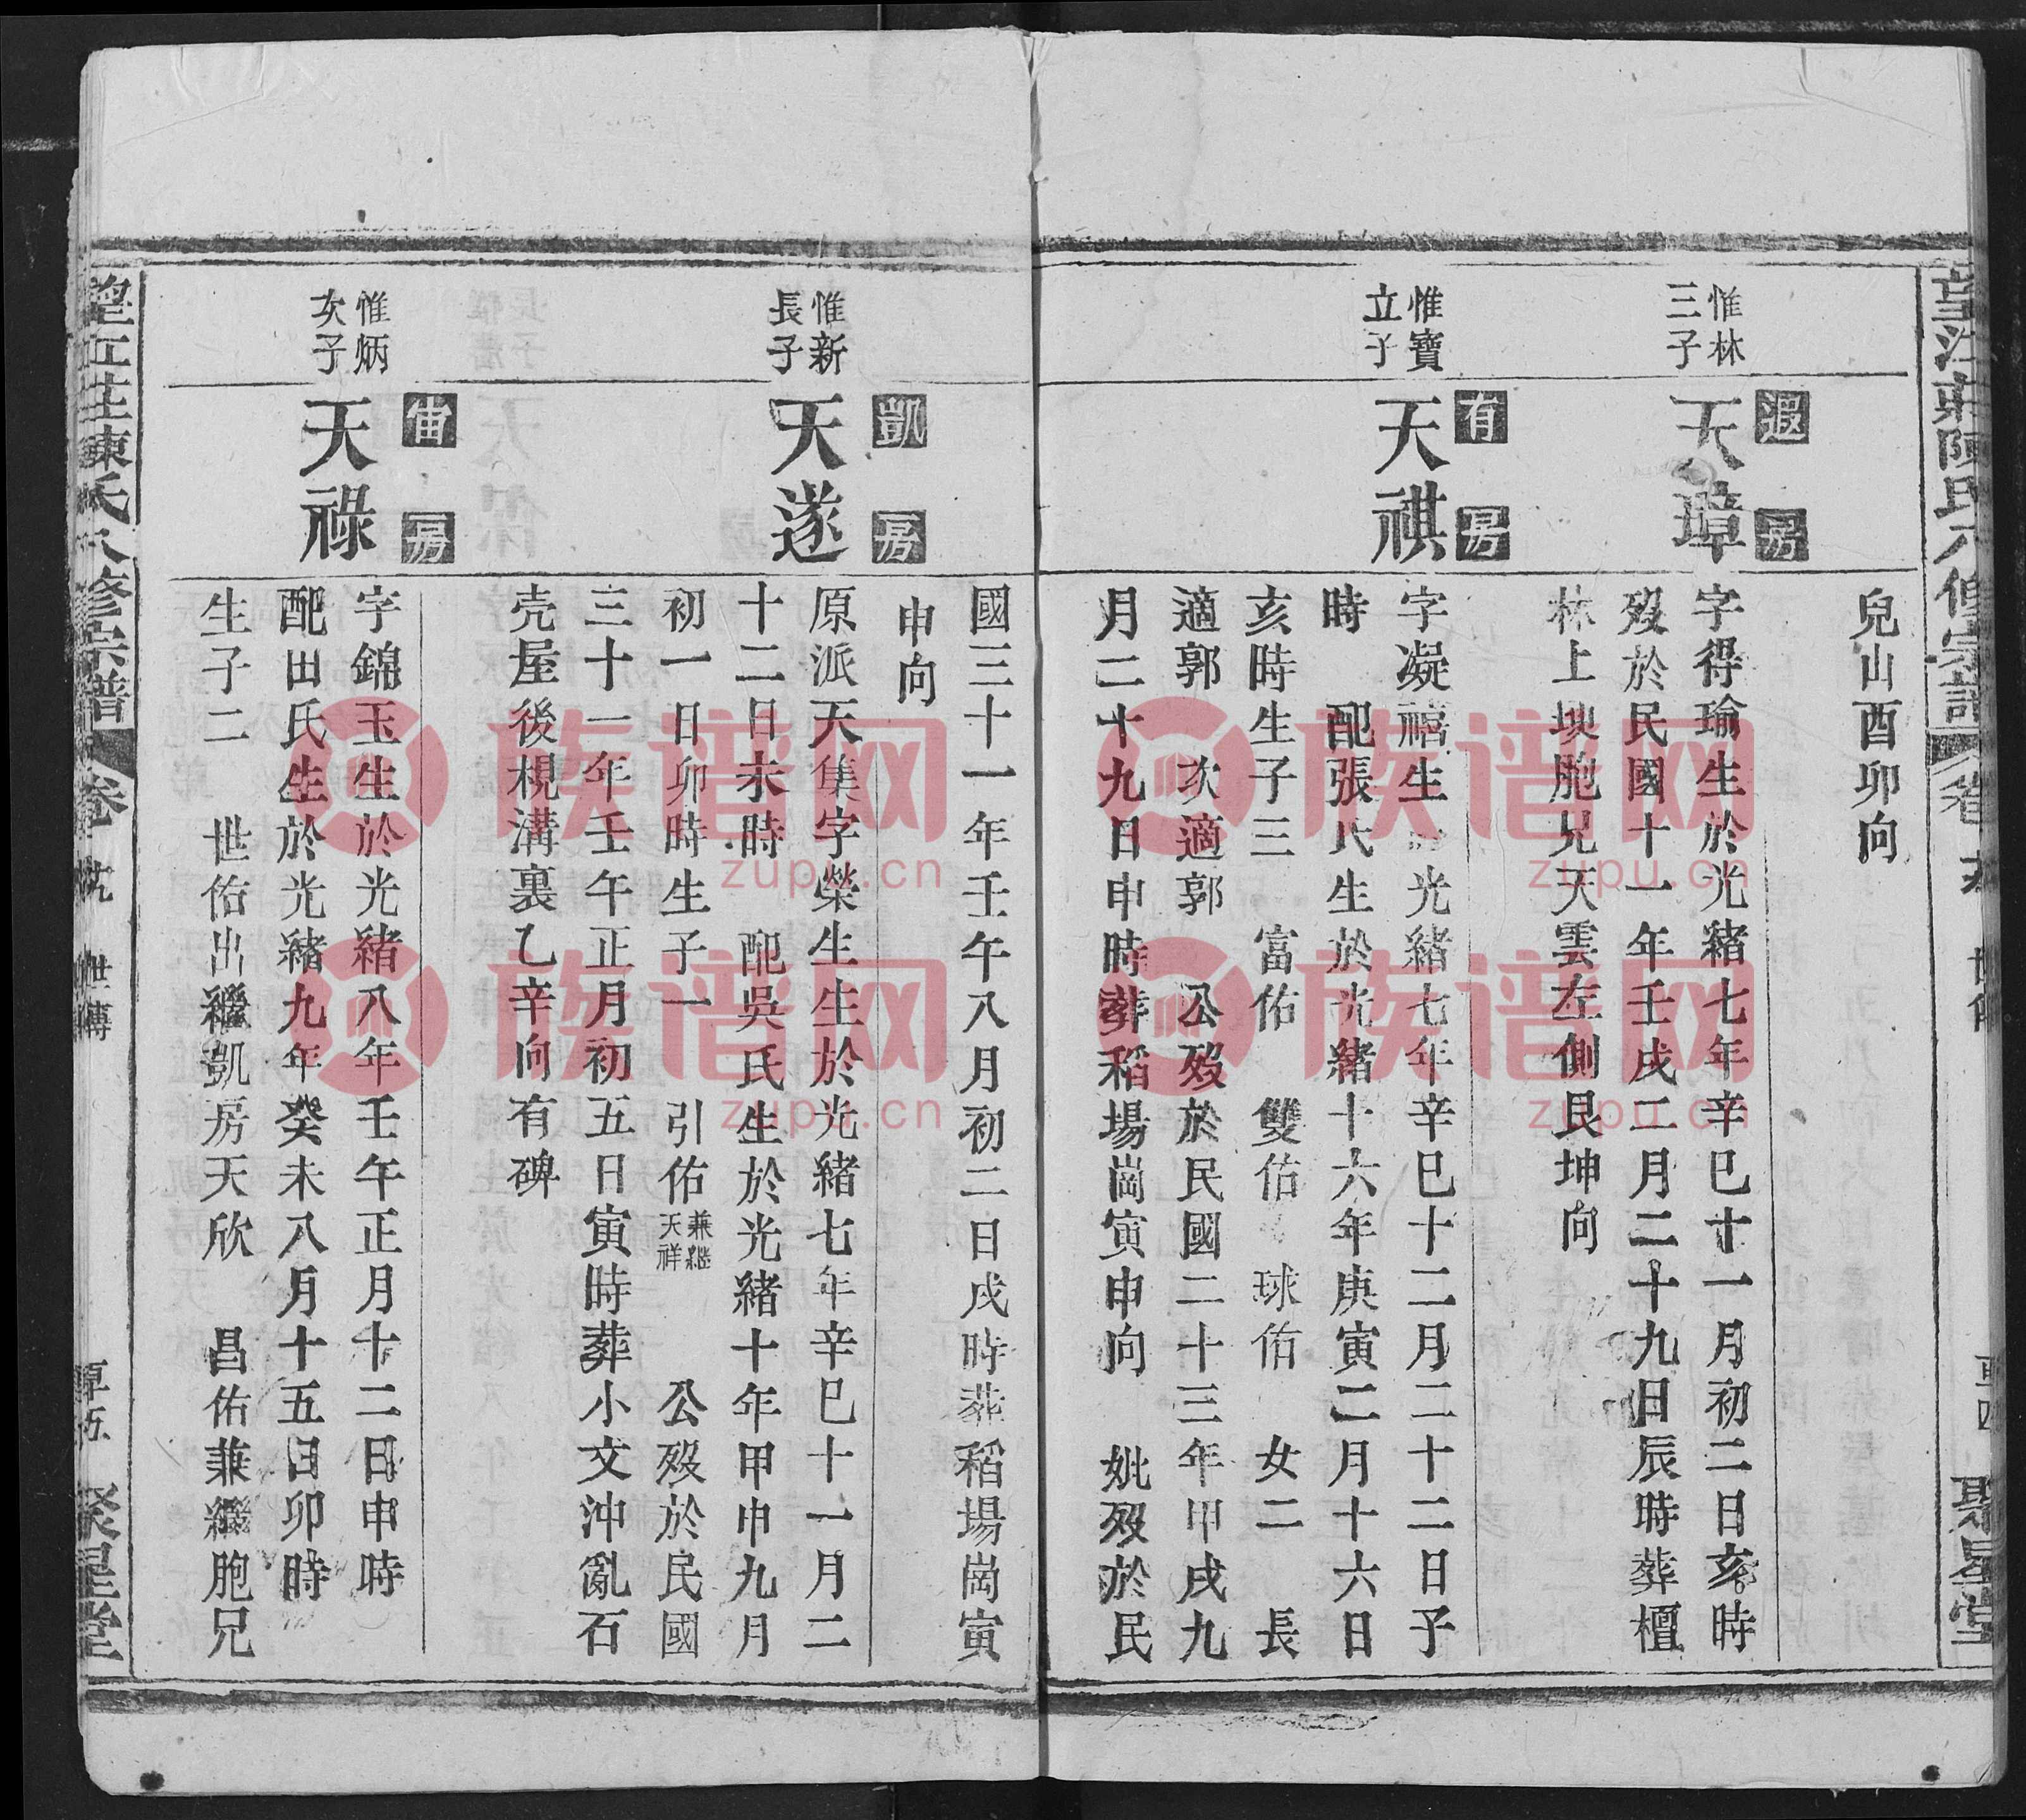 兒山酉卯向
遐房
惟林
三子
天璋
字得瑜生於光緒七年辛巳十一月初二日亥時
歿於民國十一年壬戌二月二十九日辰時葬檀
林上塊胞兄天雲左側艮坤向
有房
惟寶
立子
天祺
字凝禧生於光緒七年辛巳十二月二十二日子
時 配張氏生於光緒十六年庚寅二月十六日
亥時生子三 富佑 雙佑 球佑 女二 長
適郭 次適郭 公歿於民國二十三年甲戌九
月二十九日申時葬稻場崗寅申向 妣歿於民
國三十一年壬午八月初二日戌時葬稻場崗寅
申向
凱房
惟新
長子
天遂
原派天集字榮生生於光緒七年辛巳十一月二
十二日未時 配吳氏生於光緒十年甲申九月
初一日卯時生子一 引佑 兼繼天祥 公歿於民國
三十一年壬午正月初五日寅時葬小文沖亂石
壳屋後梘溝裏乙辛向有碑
宙房
惟炳
次子
天祿
字錦玉生於光緒八年壬午正月十二日申時
配田氏生於光緒九年癸未八月十五日卯時
生子二 世佑出繼凱房天欣 昌佑兼繼胞兄
望江莊陳氏八修宗譜 卷 世傳 聚星堂
族谱网
zupu.cn
族谱网
zupu.cn
族谱网
zupu.cn
族谱网
zupu.cn